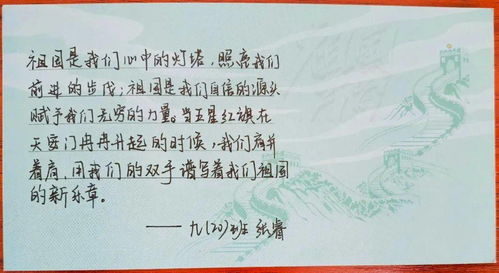 祖国是我们心中的灯塔，照亮我们
前进的步伐；祖国是我们自信的源头
赋予我们无穷的力量。当五星红旗在
天安门冉冉升起的时候，我们肩并
着肩，用我们的双手谱写着我们祖国
的新乐章。
——九(20)班 张睿